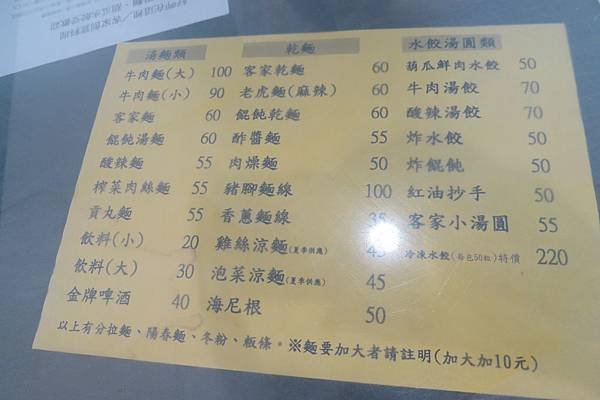 湯麵類
牛肉麵(大) 100
牛肉麵(小) 90
客家麵 60
餛飩湯麵 60
酸辣麵 55
榨菜肉絲麵 55
貢丸麵 55
飲料(小) 20
飲料(大) 30
金牌啤酒 40
乾麵
客家乾麵 60
老虎麵(麻辣) 60
餛飩乾麵 60
酢醬麵 55
肉燥麵 50
豬腳麵線 100
香蔥麵線 35
雞絲涼麵(夏季供應) 45
泡菜涼麵(夏季供應) 45
海尼根 50
水餃湯圓類
葫瓜鮮肉水餃 50
牛肉湯餃 70
酸辣湯餃 70
炸水餃 50
炸餛飩 50
紅油抄手 50
客家小湯圓 55
冷凍水餃(每包50粒)特價 220
以上有分拉麵、陽春麵、冬粉、粄條。※麵要加大者請註明(加大加10元)